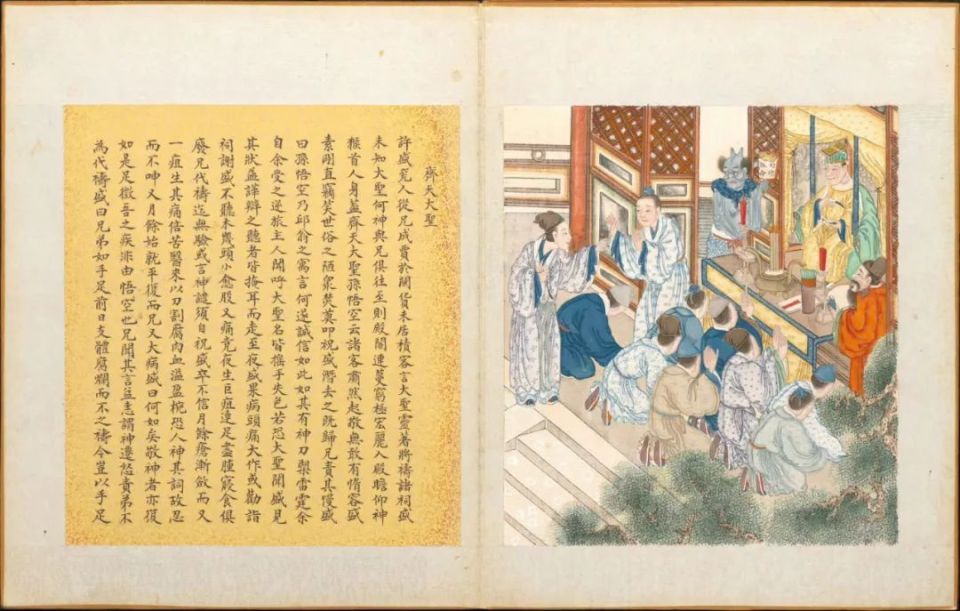 齊天大聖
許盛兗人從兄成賈於閩貨未居積客言大聖靈著將禱諸祠盛
未知大聖何神與兄俱往至則殿閣連蔓窮極宏麗入殿瞻仰神
猴首人身蓋齊天大聖孫悟空云諸客肅然起敬無敢有惰容盛
素剛直竊笑世俗之陋眾焚奠叩祝盛潛去之既歸兄責其慢盛
曰孫悟空乃邱翁之寓言何遂誠信如此如其有神刀槊雷霆余
自余受之逆旅主人聞呼大聖名皆搖手失色若恐大聖聞盛見
其狀益譁辯之聽者皆掩耳而走至夜盛果病頭痛大作或勸詣
祠謝盛不聽未幾頭小愈股又痛竟夜生巨疽連足盡腫寢食俱
廢兄代禱迄無驗或言神譴須自祝盛卒不信月餘瘡漸斂而又
一疽生其痛倍苦醫來以刀割腐肉血溢盈椀恐人神其詞故忍
而不呻又月餘始就平復而兄又大病盛曰何如矣敬神者亦復
如是足徵吾之疾非由悟空也兄聞其言益恚謂神遷怒責弟不
為代禱盛曰兄弟如手足前日支體腐爛而不之禱今豈以手足